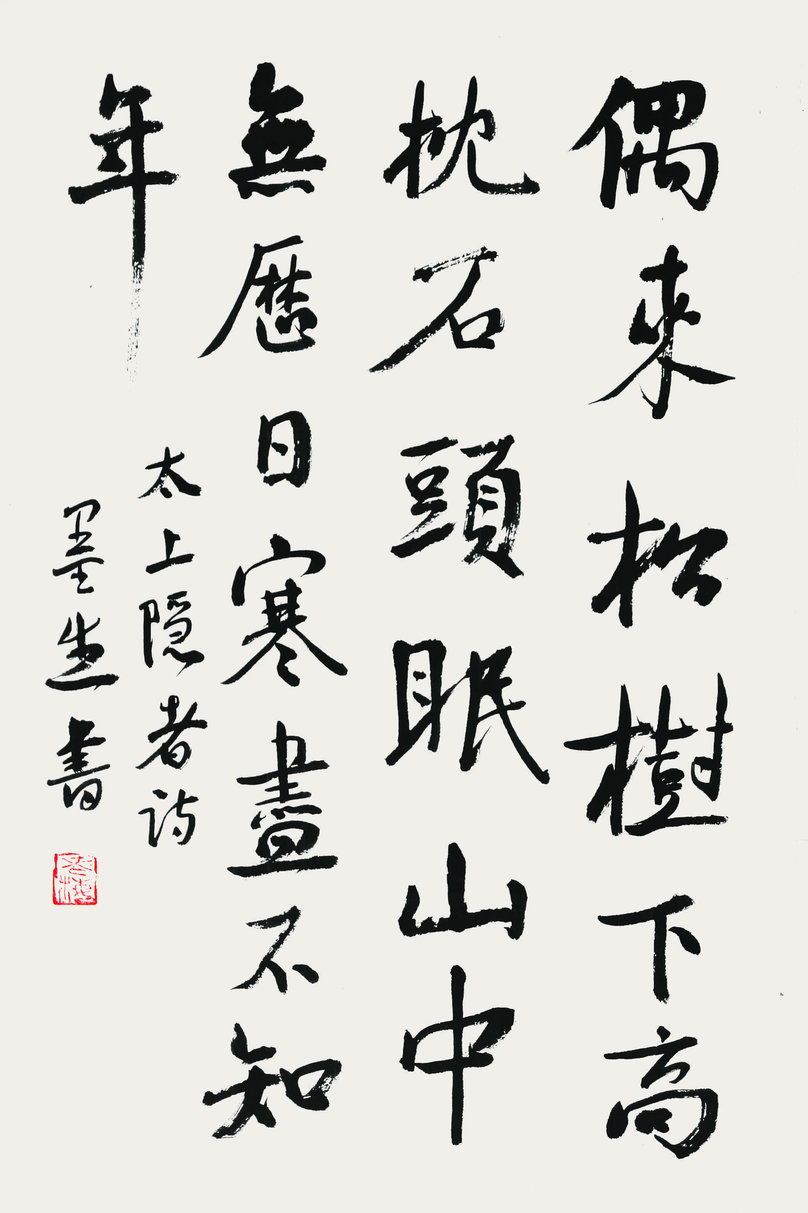 偶來松樹下高
枕石頭眠山中
無歷日寒盡不知
年
太上隐者诗
墨生書